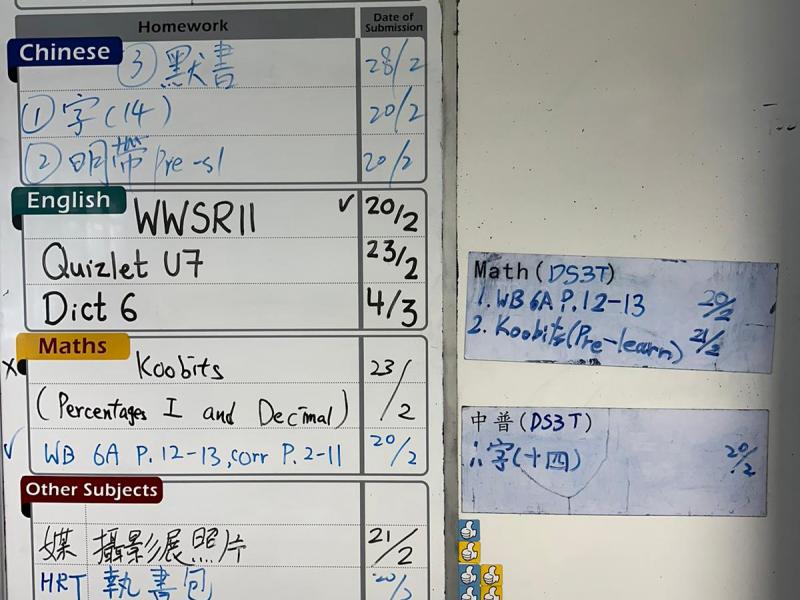 Homework
Date of Submission
Chinese
③ 默書 28/2
① 字(14) 20/2
② 明帶 Pre-sl 20/2
English
WWSR11 ✓ 20/2
Quizlet U7 23/2
Dict 6 4/3
Maths
X Koobits 23/2
(Percentages I and Decimal)
✓ WB 6A P.12-13, corr P.2-11 20/2
Other Subjects
媒 攝影展照片 21/2
HRT 執書包 20/2
Math(DS3T)
1. WB 6A P.12-13 20/2
2. Koobits(Pre-learn) 21/2
中普(DS3T)
字(十四) 20/2